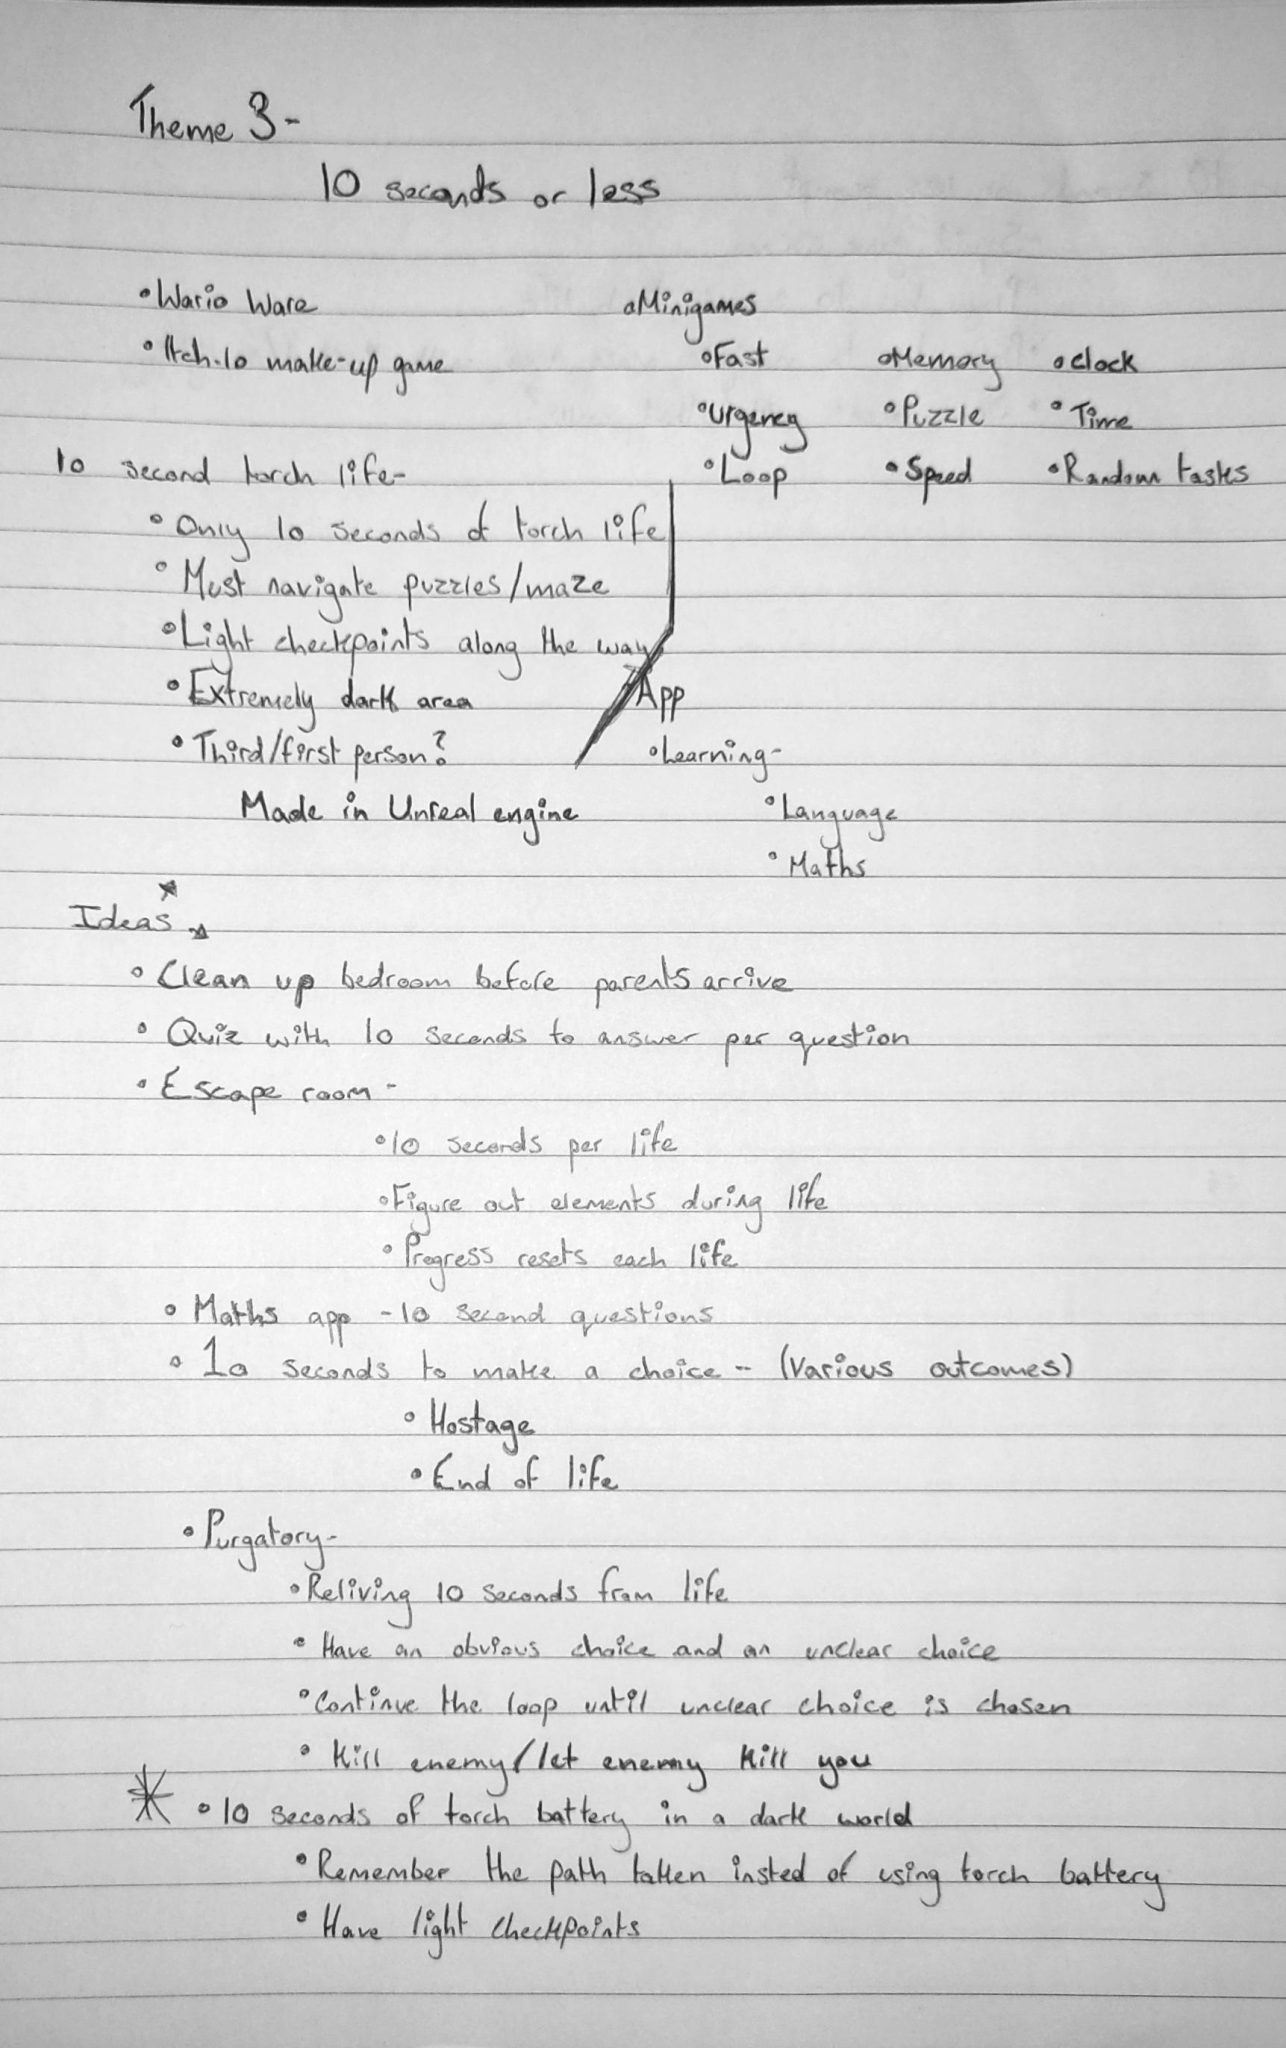 Theme 3-
10 seconds or less
•Wario Ware
•Itch.io make-up game
•Minigames
•Fast •Memory •clock
•Urgency •Puzzle •Time
•Loop •Speed •Random tasks
10 second torch life-
•Only 10 seconds of torch life
•Must navigate puzzles/maze
•Light checkpoints along the way
•Extremely dark area
•Third/first person?
Made in Unreal engine
•App
•Learning-
•Language
•Maths
Ideas
•Clean up bedroom before parents arrive
•Quiz with 10 seconds to answer per question
•Escape room-
•10 seconds per life
•Figure out elements during life
•Progress resets each life
•Maths app -10 second questions
•10 seconds to make a choice - (Various outcomes)
•Hostage
•End of life
•Purgatory-
•Reliving 10 seconds from life
•Have an obvious choice and an unclear choice
•Continue the loop until unclear choice is chosen
•Kill enemy/let enemy kill you
* •10 seconds of torch battery in a dark world
•Remember the path taken insted of using torch battery
•Have light checkpoints